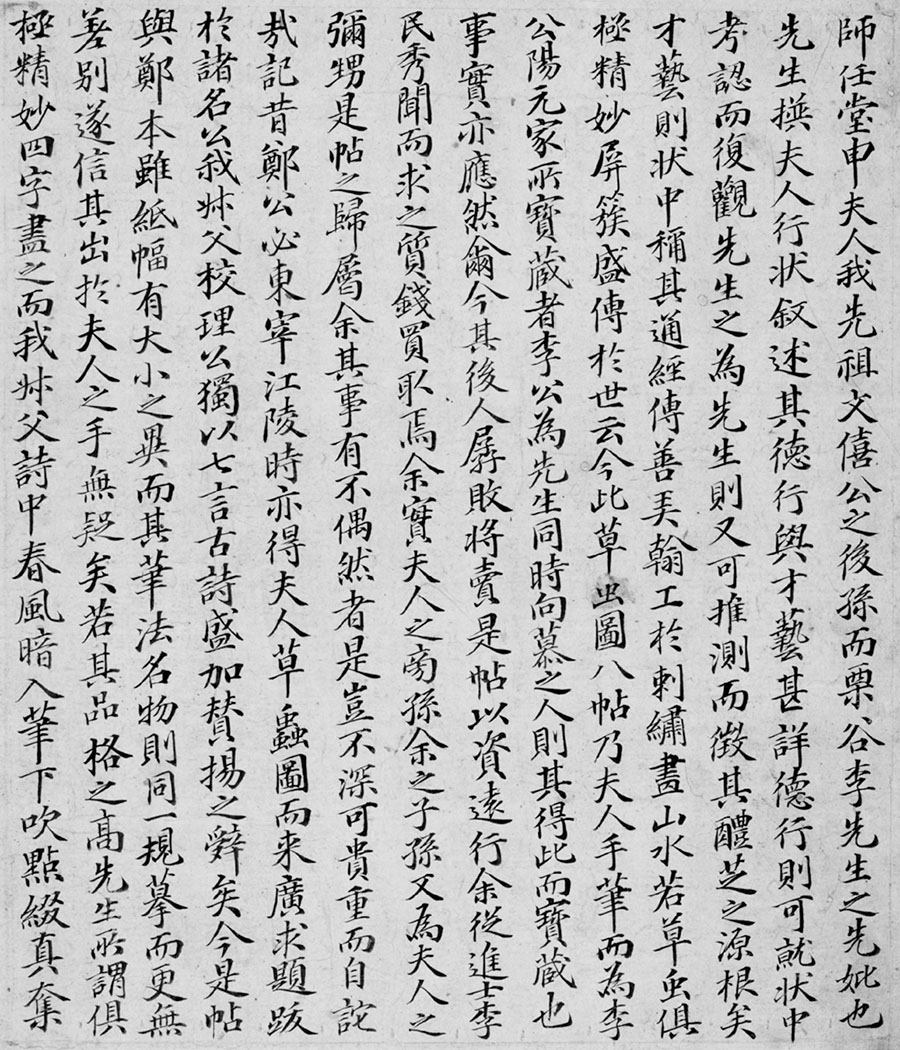 師任堂申夫人我先祖文僖公之後孫而栗谷李先生之先妣也
先生撰夫人行狀敘述其德行與才藝甚詳德行則可就狀中
考認而復觀先生之為先生則又可推測而徵其醴芝之源根矣
才藝則狀中稱其通經傳善美翰工於刺繡畫山水若草虫俱
極精妙屏簇盛傳於世云今此草虫圖八帖乃夫人手筆而為李
公陽元家所寶藏者李公為先生同時向慕之人則其得此而寶藏也
事實亦應然爾今其後人孱敗將賣是帖以資遠行余從進士李
民秀聞而求之質錢買取焉余實夫人之旁孫余之子孫又為夫人之
彌甥是帖之歸屬余其事有不偶然者是豈不深可貴重而自詑
哉記昔鄭公必東宰江陵時亦得夫人草蟲圖而來廣求題跋
於諸名公我叔父校理公獨以七言古詩盛加贊揚之辭矣今是帖
與鄭本雖紙幅有大小之異而其筆法名物則同一規摹而更無
差別遂信其出於夫人之手無疑矣若其品格之高先生所謂俱
極精妙四字盡之而我叔父詩中春風暗入筆下吹點綴真奪